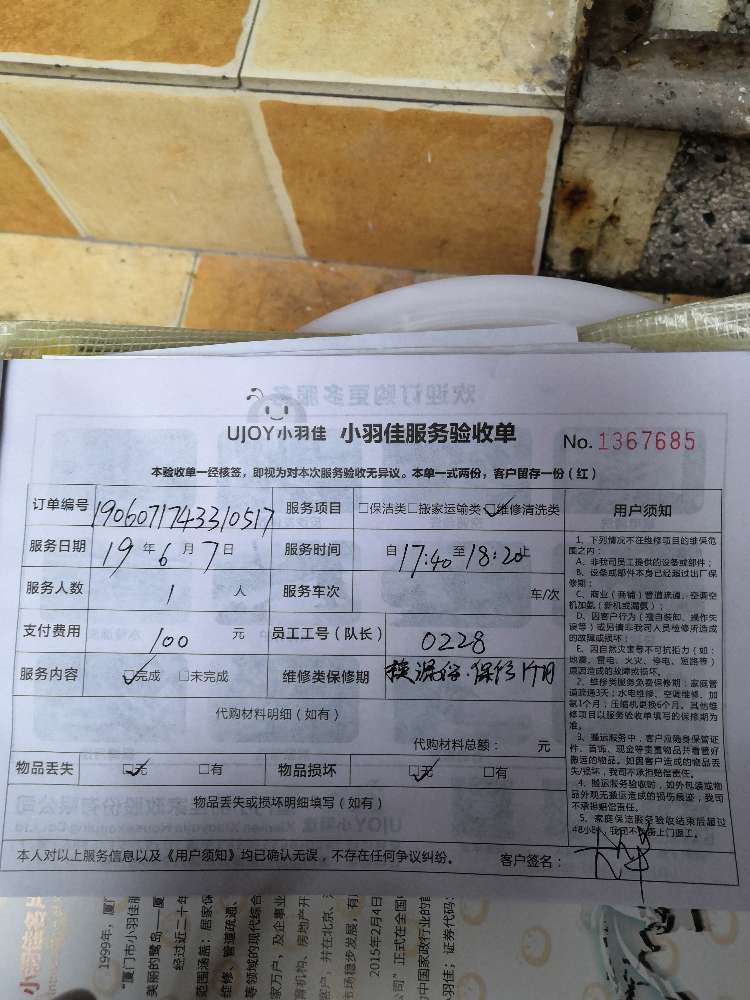 UJOY小羽佳 小羽佳服务验收单 No. 1367685
本验收单一经核签，即视为对本次服务验收无异议。本单一式两份，客户留存一份（红）
订单编号 1906071743310517 服务项目 □保洁类□搬家运输类☑维修清洗类
服务日期 19年6月7日 服务时间 自17:40至18:20止
服务人数 1 人 服务车次 车/次
支付费用 100 元 员工工号（队长） 0228
服务内容 ☑完成 □未完成 维修类保修期 保修1个月
代购材料明细（如有）
代购材料总额： 元
物品丢失 ☑无 □有 物品损坏 ☑无 □有
物品丢失或损坏明细填写（如有）
本人对以上服务信息以及《用户须知》均已确认无误，不存在任何争议纠纷。 客户签名：
用户须知
1、下列情况不在维修项目的维保范
围之内：
A、非我司员工提供的设备或部件；
B、设备或部件本身已经超过出厂保
修期；
C、商业（商铺）管道疏通、空调空
机加氨（新机或漏氨）；
D、因客户行为（擅自装卸、操作失
误等）或另请非我司人员检修所造成
的故障或损坏；
E、因自然灾害等不可抗拒力（如：
地震、雷电、火灾、停电、短路等）
原因造成的故障或损坏。
2、维修类服务免费保修期：家庭管
道疏通3天；水电维修、空调维修、加
氨1个月；压缩机更换6个月。其他维
修项目以服务验收单填写的保修期为
准。
3、搬运服务中，客户应随身保管证
件、首饰、现金等贵重物品并看管好
搬运的物品。如因客户造成的物品丢
失/损坏，我司不承担赔偿责任。
4、搬运服务验收时，如外包装或物
品外观无搬运造成的损伤痕迹，我司
不承担赔偿责任。
5、家庭保洁服务验收结束后超过
48小时，我司不负责上门返工。
1999年，厦门
"厦门市小羽佳
美丽的鹭岛—厦
经过近二十年
范围涵盖：居家保
维修、管道疏通、
等领域的现代综合
家万户，及企事业
算机构、房地产开
客户，并在北京、
市场稳步发展，有
2015年2月4日
公司"正式在全国
中国家政行业的首
羽佳；证券代码：